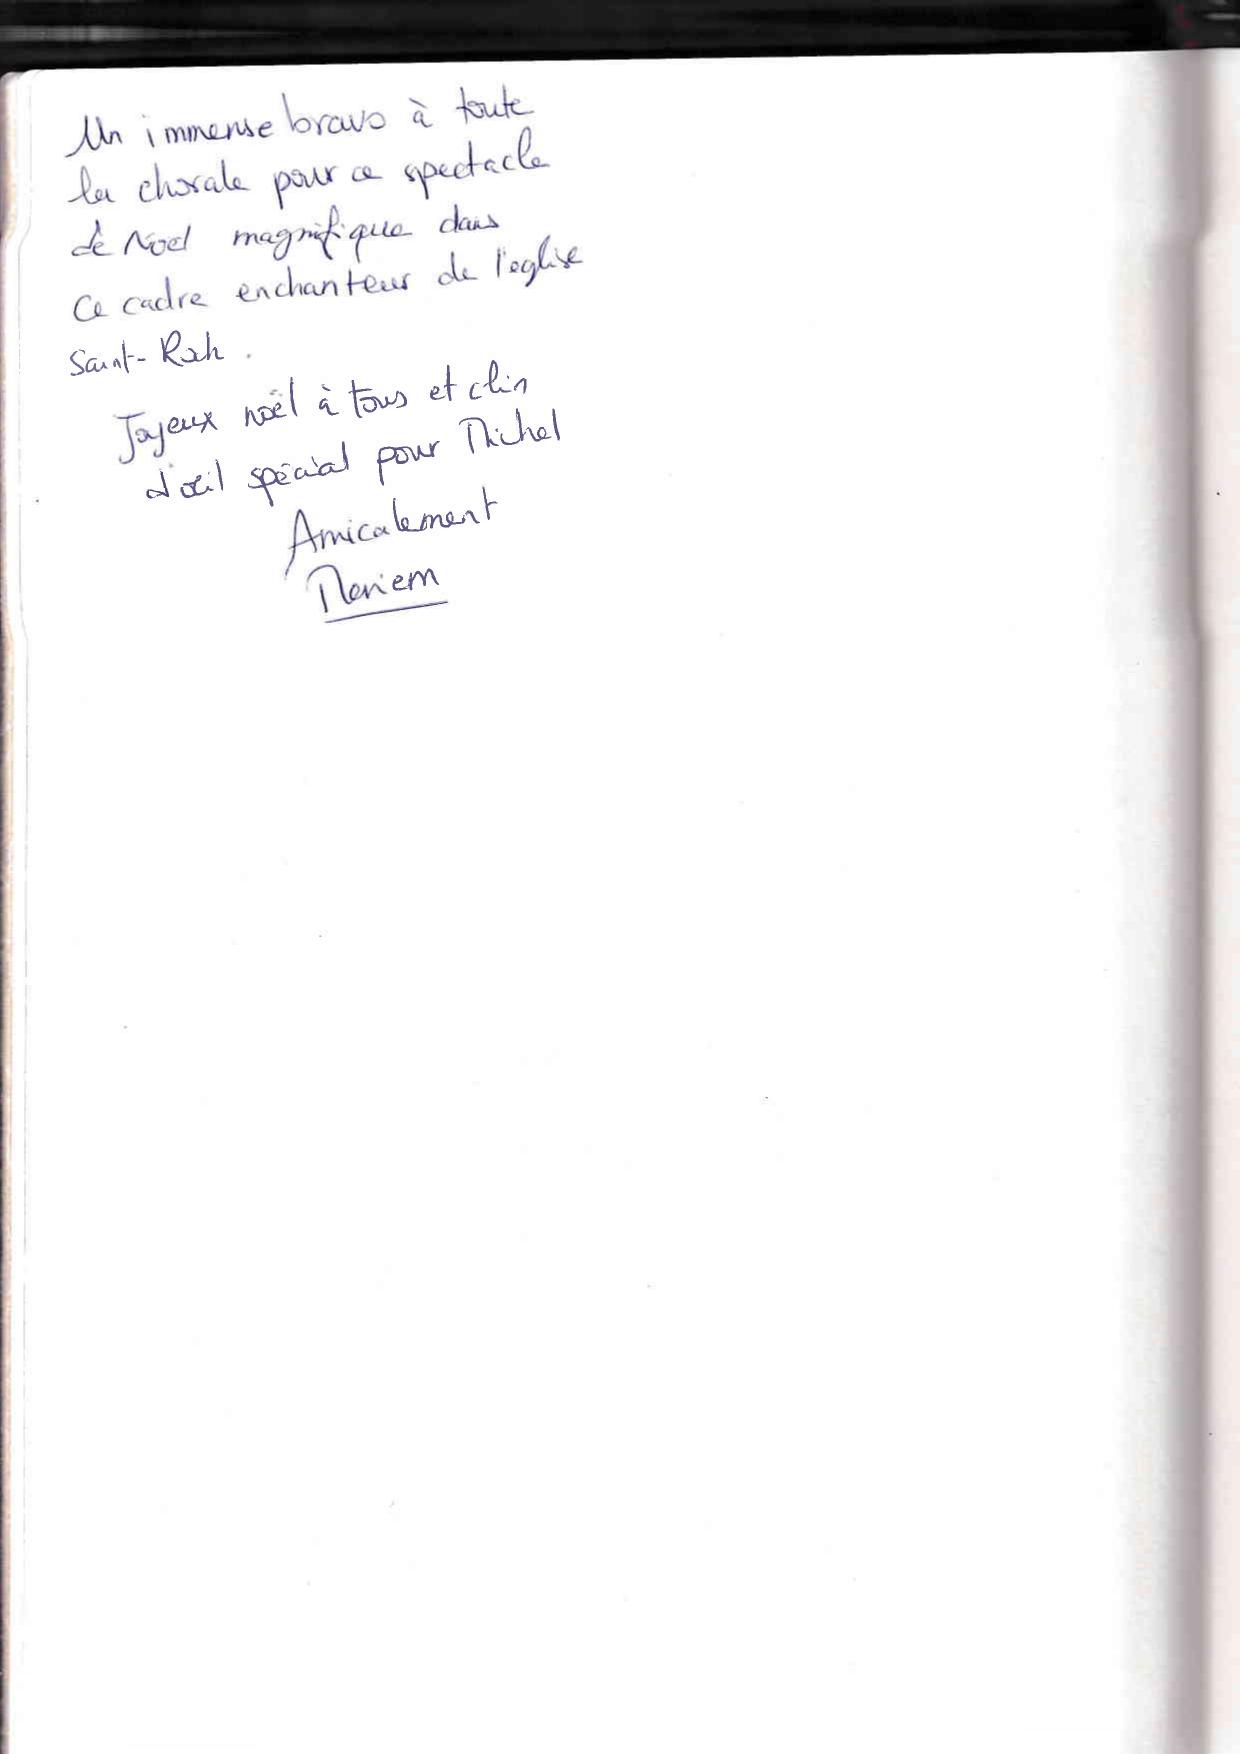 Un immense bravo à toute
la chorale pour ce spectacle
de Noel magnifique dans
Ce cadre enchanteur de l'eglise
Saint-Roch.
Joyeux noël à tous et clin
d'œil spécial pour Michel
Amicalement
Meriem